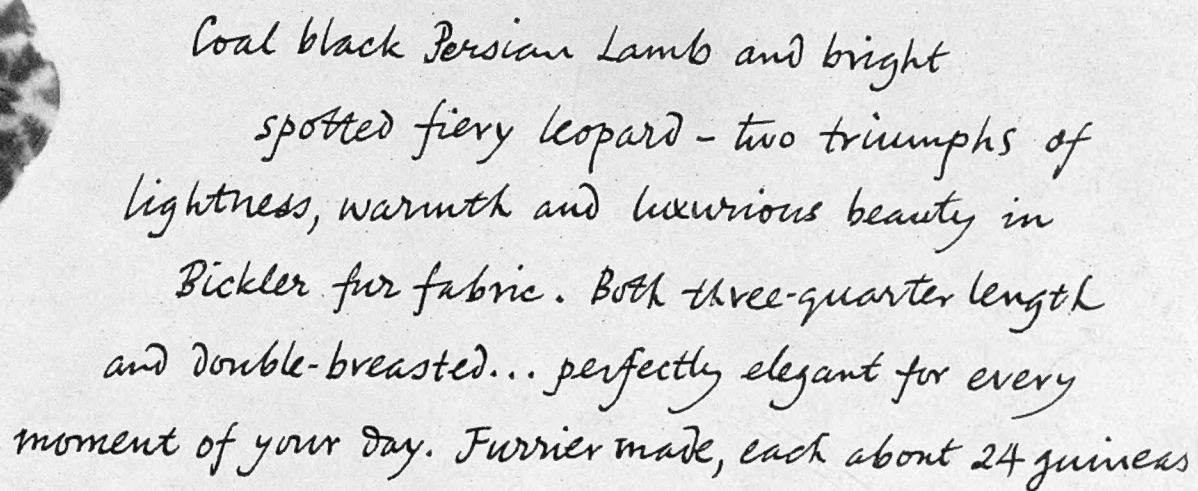 Coal black Persian Lamb and bright
spotted fiery leopard - two triumphs of
lightness, warmth and luxurious beauty in
Bickler fur fabric. Both three-quarter length
and double-breasted... perfectly elegant for every
moment of your day. Furrier made, each about 24 guineas